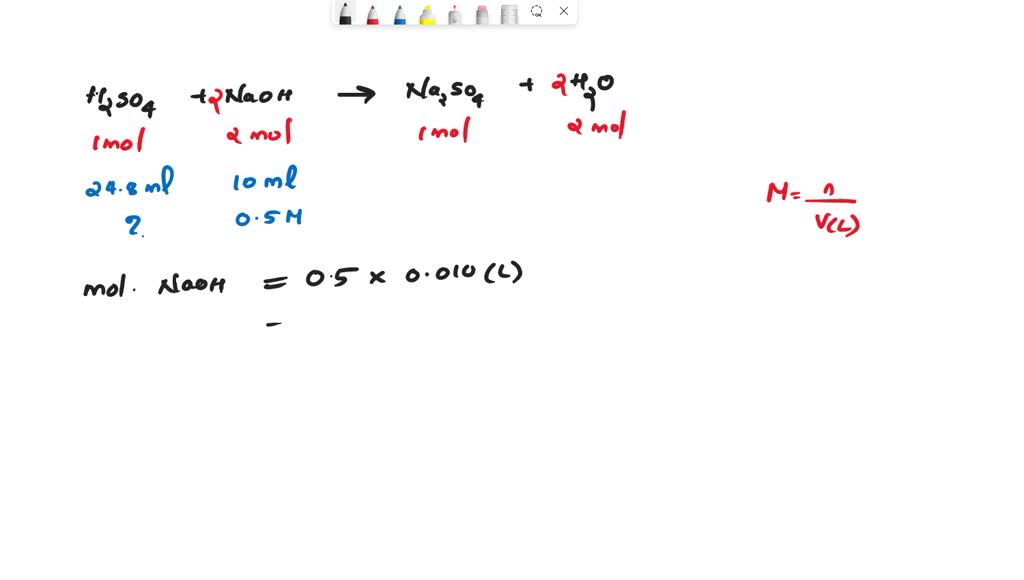 H2SO4 + 2NaOH → Na2SO4 + 2H2O
1mol 2 mol 1mol 2 mol
24.8 ml 10 ml
?. 0.5 M
M = n / V(L)
mol. NaOH = 0.5 × 0.010 (L)
=